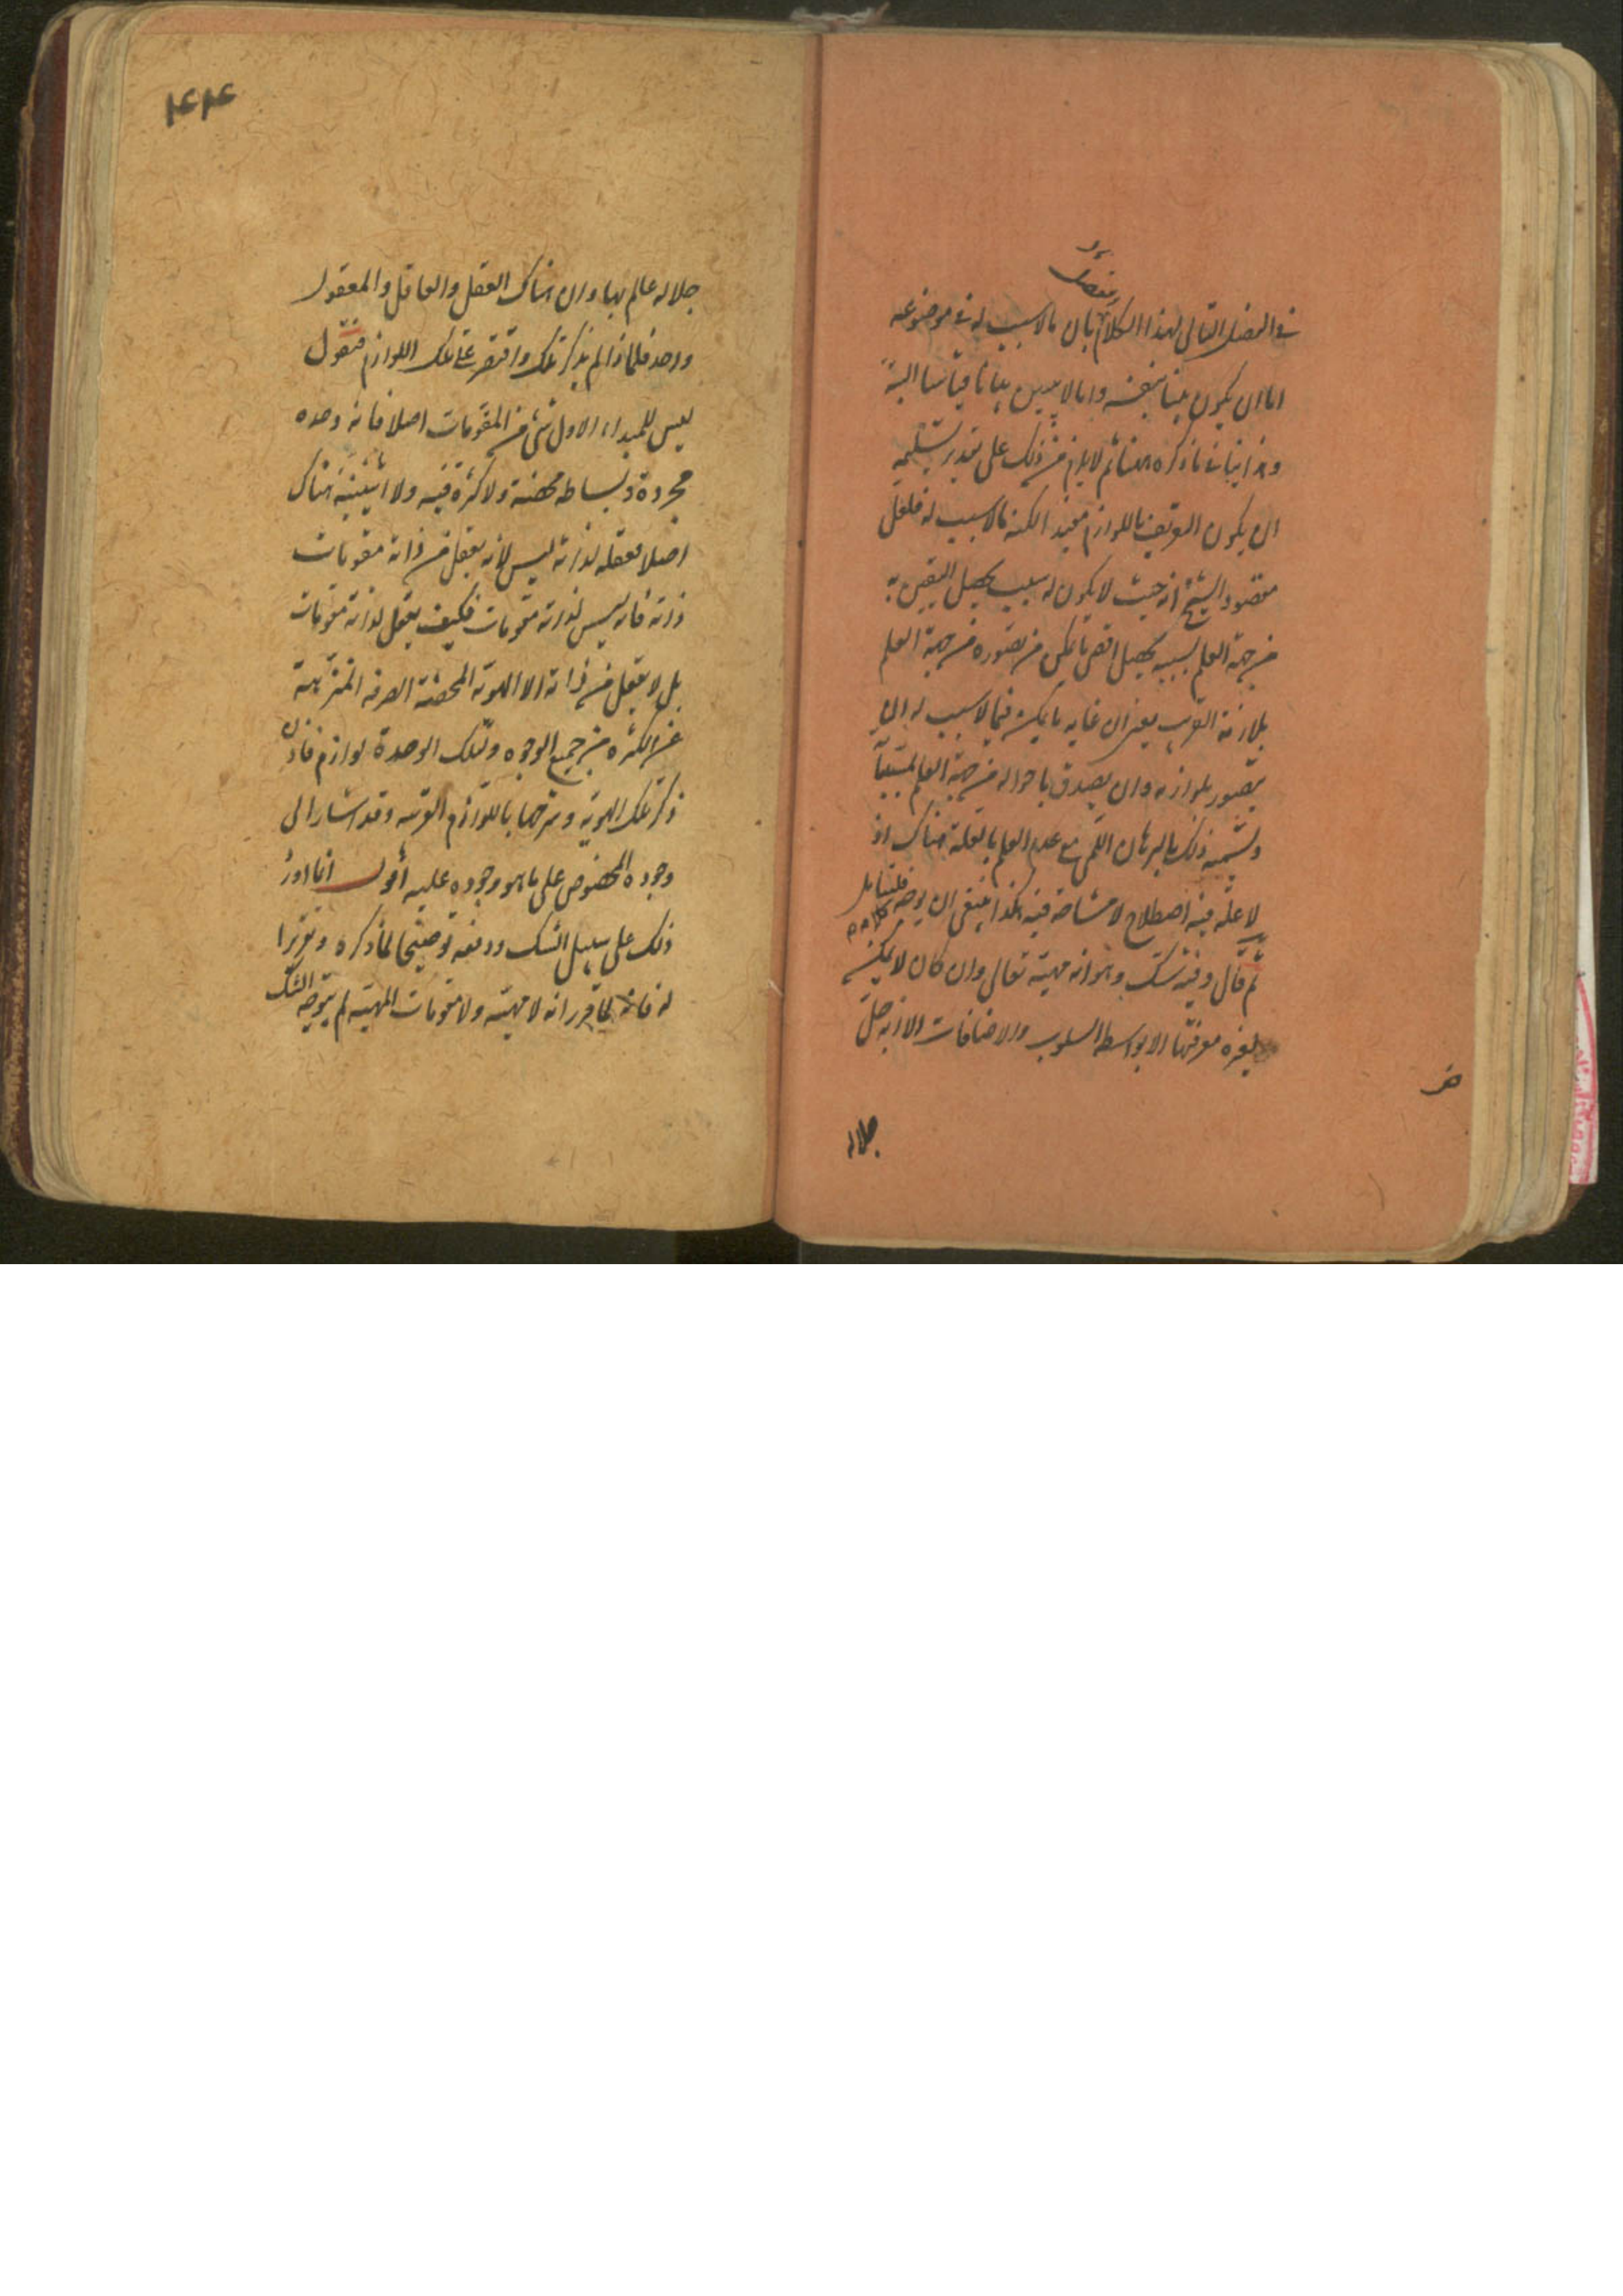 في الفصل التالي لهذا الكلام بان ما لا سبب له في موضوعه
اما ان يكون بينا بنفسه واما لا يبين بيانا قياسيا البتة
ما ذكره هنا ثم لا يلزم من ذلك على تقدير تسليمه
ان يكون التعريف باللوازم مفيد الكنه ما لا سبب له فلعل
مقصود الشيخ انه حيث لا يكون له سبب يحصل اليقين به
من جهة العلم بسببه يحصل اقصى ما يمكن من تصوره من جهة العلم
بلازمه القريب يعني ان غاية ما يمكن فيما لا سبب له ان
يتصور بلوازمه وان يصدق باحواله من جهة العلم
وتسميه ذلك بالبرهان اللمي مع عدم العلم بالعلة هناك اذ
لا علة فيه اصطلاح لا مشاحة فيه هكذا ينبغي ان يوجه كلامه فليتأمل
ثم قال وفيه شك وهو انه مهيته تعالى وان كان لا يمكن
لغيره معرفتها الا بواسطة السلوب والاضافات الا انه جل
جلاله
۴۲۴
جلاله عالم بها وان هناك العقل والعاقل والمعقول
واحد فلماذا لم يذكر تلك واقتصر على تلك اللوازم فنقول
ليس للمبداء الاول شئ من المقومات اصلا فانه وحده
مجردة وبساطه محضة ولا كثرة فيه ولا اثنينية هناك
اصلا فعقله لذاته ليس لانه يعقل من ذاته مقومات
ذاته فانه ليس لذاته مقومات فكيف يعقل لذاته مقومات
بل لا يعقل من ذاته الا الهوية المحضة الصرفة المنزهة
عن الكثرة من جميع الوجوه ولتلك الوحدة لوازم فاذن
ذكر تلك الهوية وشرحها باللوازم القريبه وقد اشار الى
وجوده المخصوص على ما هو وجوده عليه اقول انما اورد
ذلك على سبيل الشك ودفعه توضيحا لما ذكره وتقريرا
له فانه لما قرر انه لا مهية ولا مقومات المهية لم يتوجه الشك